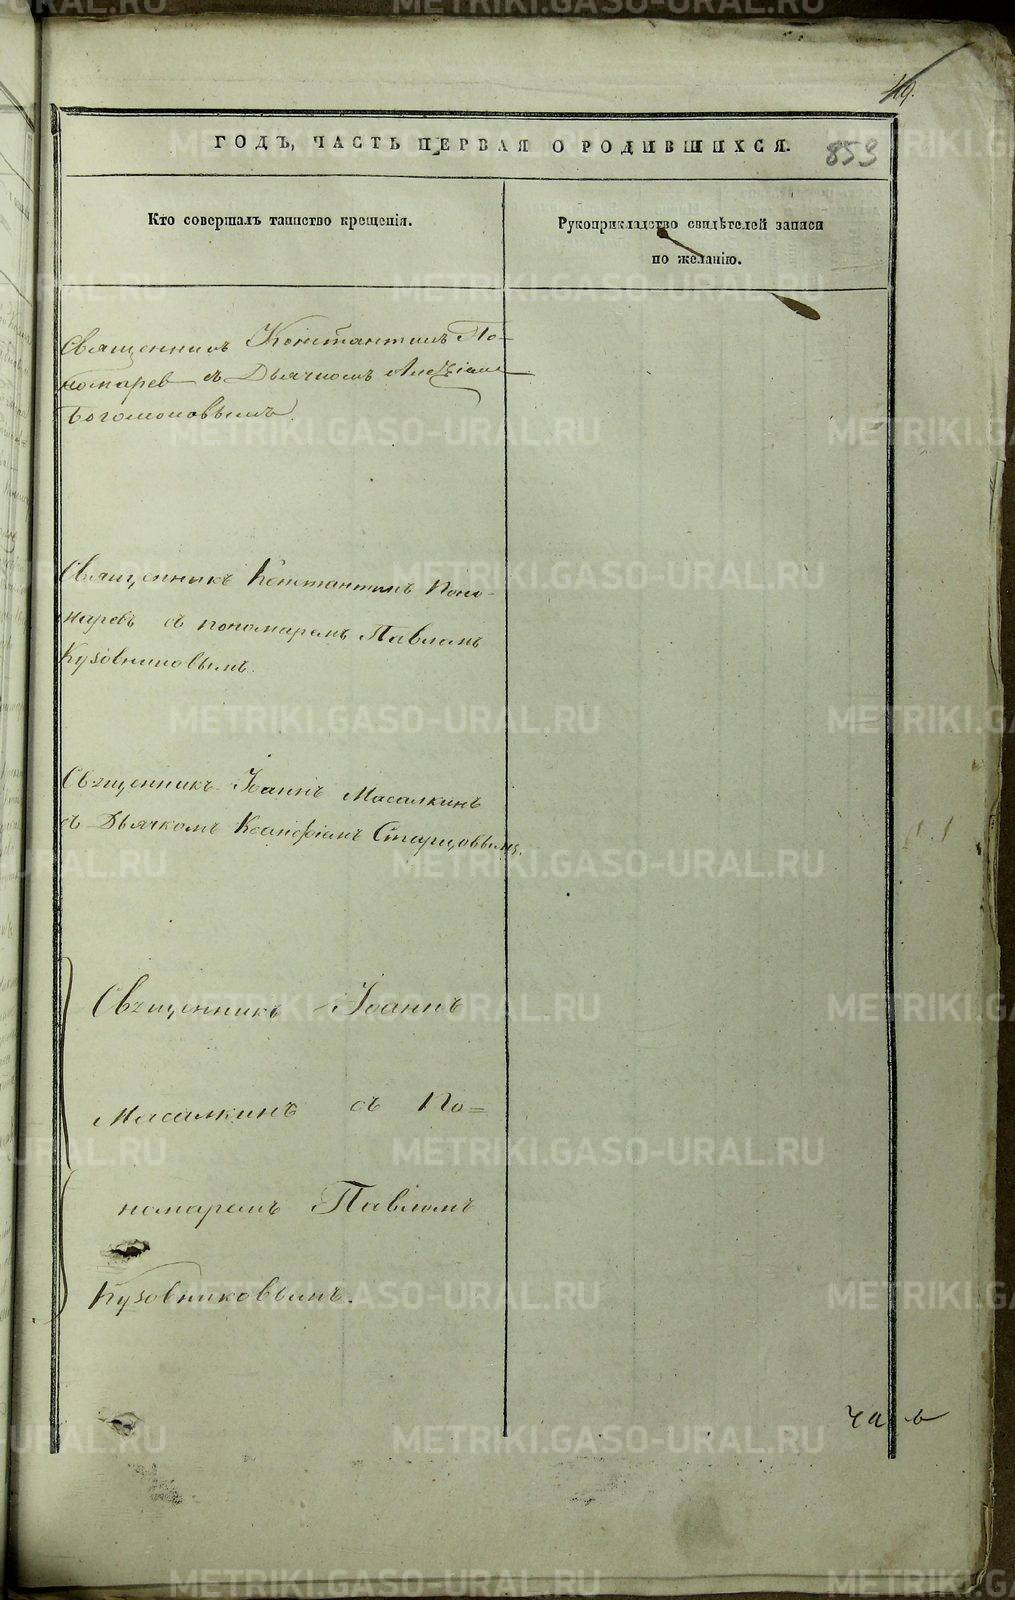 49.
ГОДЪ, ЧАСТЬ ПЕРВАЯ О РОДИВШИХСЯ.
853
Кто совершалъ таинство крещенія.
Рукоприкладство свидѣтелей записи
по желанію.
Священникъ Константинъ По-
номарев съ Дьячкомъ Алексіемъ
Богомоловымъ.
Священникъ Константинъ Поно-
маревъ съ пономаремъ Павломъ
Кузовниковымъ.
Священникъ Іоаннъ Масалкинъ
съ Дьячкомъ Ксанфіемъ Старцовымъ.
Священникъ Іоаннъ
Масалкинъ съ По=
номаремъ Павломъ
Кузовниковымъ.
METRIKI.GASO-URAL.RU